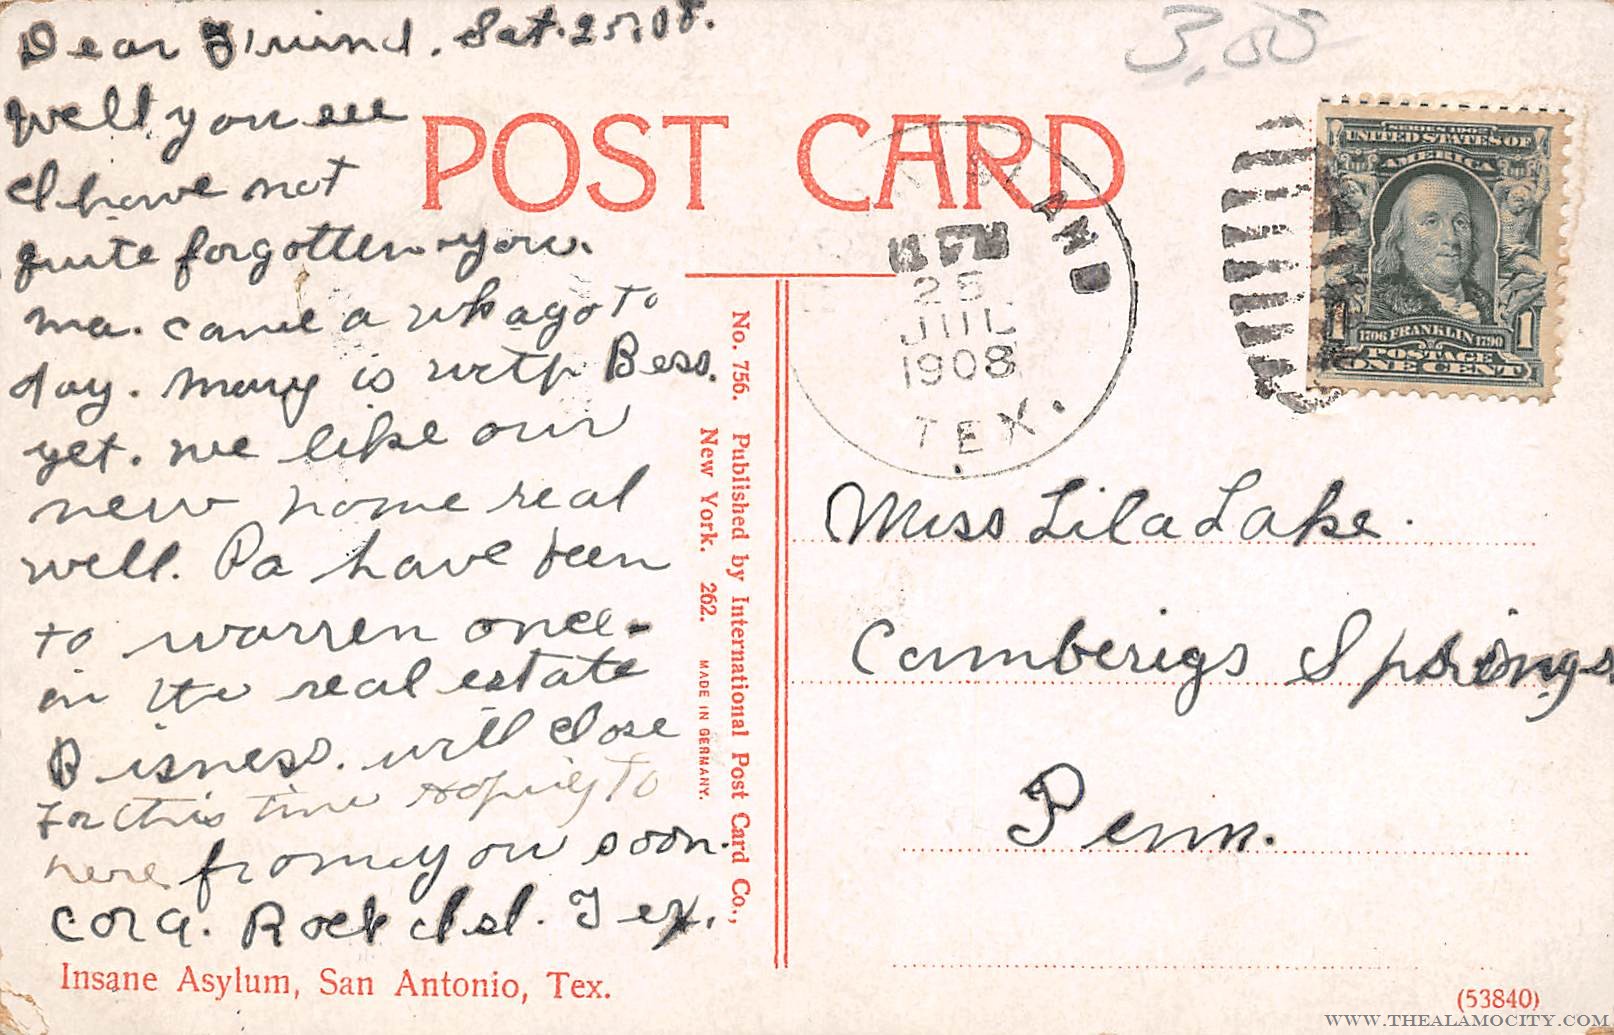 Dear Friend. Sat. 25, 08.
well, you see
I have not
quite forgotten you.
ma. came a wk ago to
day. Mary is with Bess.
yet. we like our
new home real
well. Pa have been
to warren once.
in the real estate
Bisness. will close
For this time hoping to
here from you soon.
Cora. Rock Isl. Tex.
Insane Asylum, San Antonio, Tex.
3.00
POST CARD
No. 756. Published by International Post Card Co.,
New York. 262. MADE IN GERMANY.
LAND
25
JUL
1908
TEX.
UNITED STATES OF
AMERICA
1 1706 FRANKLIN 1790 1
POSTAGE
ONE CENT
Miss Lila Lake.
Camberigs Springs
Penn.
(53840)
WWW.THEALAMOCITY.COM